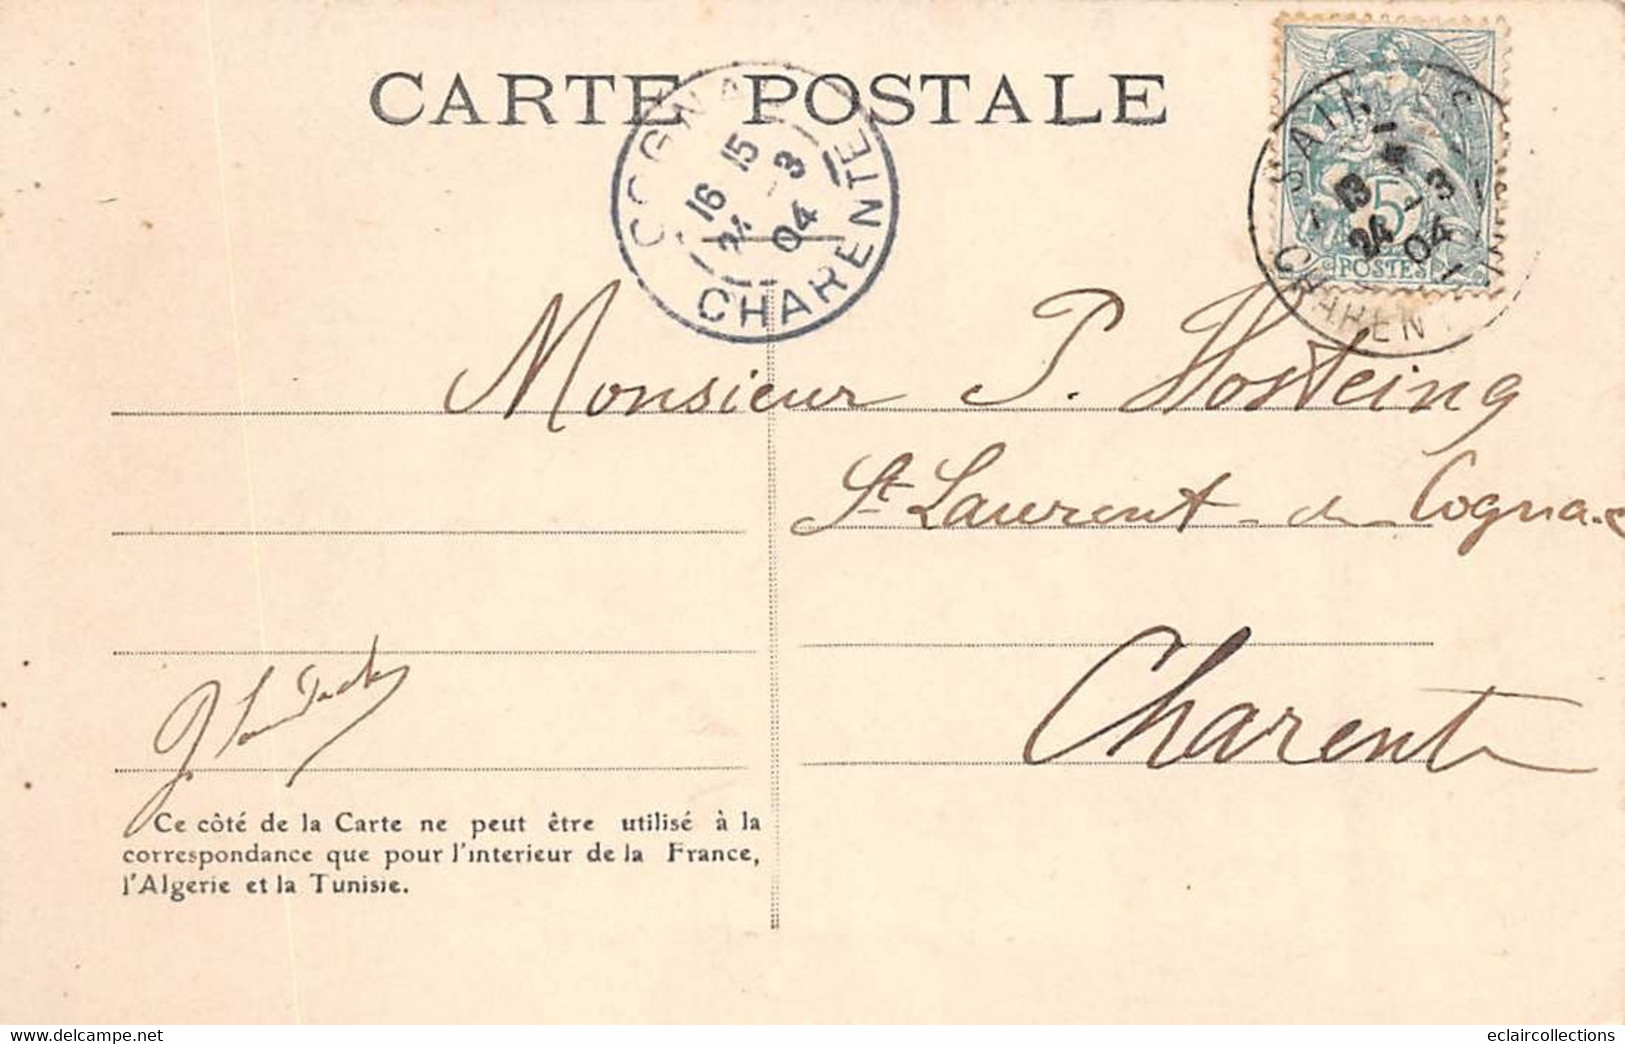 CARTE POSTALE
COGNA
16 15
24 - 3
04
CHARENTE
SAINTES
13
24 - 3
04
5
POSTES
Monsieur P. Hosteing
St Laurent - de - Cognac
Charente
Ce côté de la Carte ne peut être utilisé à la
correspondance que pour l'interieur de la France,
l'Algerie et la Tunisie.
www.delcampe.net
eclaircollections